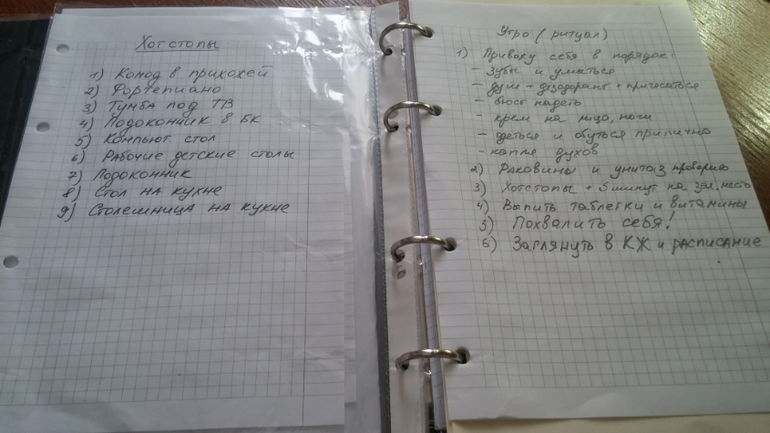 Хотстопы
1) Комод в прихожей
2) Фортепиано
3) Тумба под ТВ
4) Подоконник в БК
5) Компьют. стол
6) Рабочие детские столы
7) Подоконник
8) Стол на кухне
9) Столешница на кухне
Утро (ритуал)
1) Привожу себя в порядок:
- зубы и умыться
- душ - дезодорант + причесаться
- бюст надеть
- крем на лицо, ноги
- одеться и обуться прилично
- капля духов
2) Раковины и унитаз проверяю
3) Хотстопы + 5 минут на
4) Выпить таблетки и витамины
5) Похвалить себя!
6) Заглянуть в КЖ и расписание